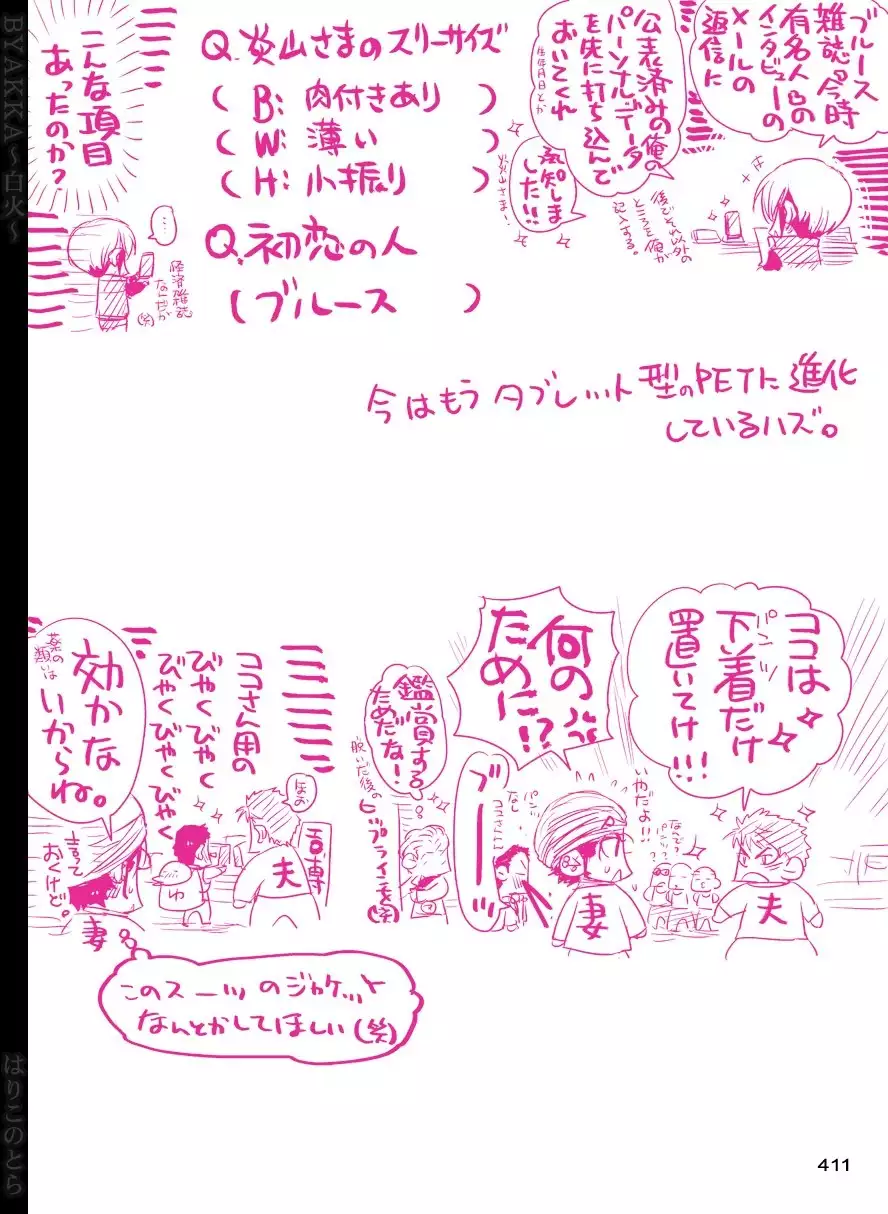 ブルース
雑誌の今時
有名人Bの
インタビューの
メールの
返信に
公表済みの俺の
パーソナルデータ
を先に打ち込んで
おいてくれ
生年月日とか
承知しま
した!!
炎山さま…
後でそれ以外の
ところを俺が
記入する。
Q.炎山さまのスリーサイズ
(B:肉付きあり)
(W:薄い)
(H:小振り)
Q.初恋の人
(ブルース)
こんな項目
あったのか?
……
経済雑誌
なんだが
(笑)
今はもうタブレット型のPETに進化
しているハズ。
ココは
下着だけ
パンツ
置いてけ!!!
いやだよ!!
なんで?
パンツ?
夫
何の
ために!?
妻
パンツ
なし
ココさん
ブーッ
鑑賞する
ためだな!
脱いだ後の
ヒップラインを(笑)
ほお
ココさん用の
びやくびやく
びやくびやくびやく
夫
ゆ
効かな
いからね。
薬の
類いは
言って
おくけど。
妻
このスーツのジャケット
なんとかしてほしい(笑)
411
BYAKKA～白火～
はりこのとら